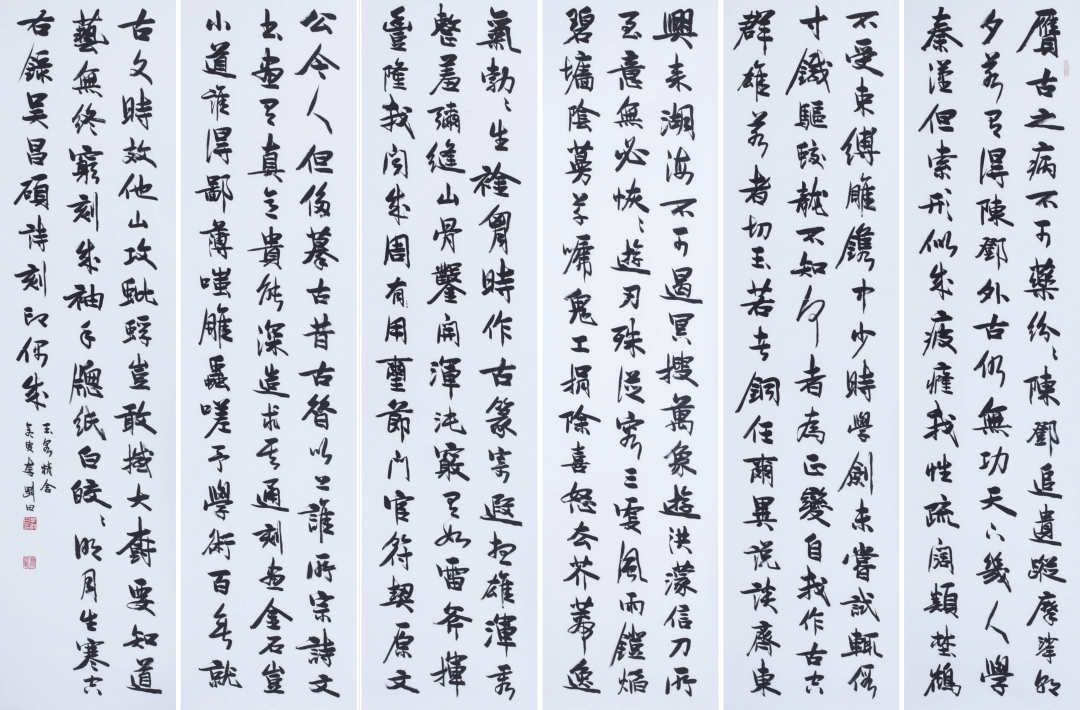 贋古之病不可藥紛々陳鄧追遺蹤摩挲朝
夕若有得陳鄧外古仍無功天下幾人學
秦漢但索形似成疲癃我性疏闊類埜鶴
不受束縛雕鐫中少時學劍未嘗試輒假
寸鐵驅蛟龍不知何者為正變自我作古空
群雄若者切玉若者銅任爾異說談齊東
興來湖海不可遏冥搜萬象遊洪濛信刀所
至意無必恢々遊刃殊從容三更風雨鐙焰
碧墻陰蔓草嘯鬼工捐除喜怒去芥蒂逸
氣勃々生襟胸時作古篆寄遐想雄渾秀
整羞彌縫山骨鑿開渾沌竅有如雷斧揮
豐隆我聞成周有用璽節門官符契原文
公今人但侈摹古昔古昔以上誰所宗詩文
書畫有真意貴能深造求其通刻畫金石豈
小道誰得鄙薄嗤雕蟲嗟予學術百無就
古文時效他山攻蚍蜉豈敢撼大樹要知道
藝無終窮刻成袖手牕紙白皎々明月生寒空
右錄吳昌碩詩刻印偶成
精舍
李剛田